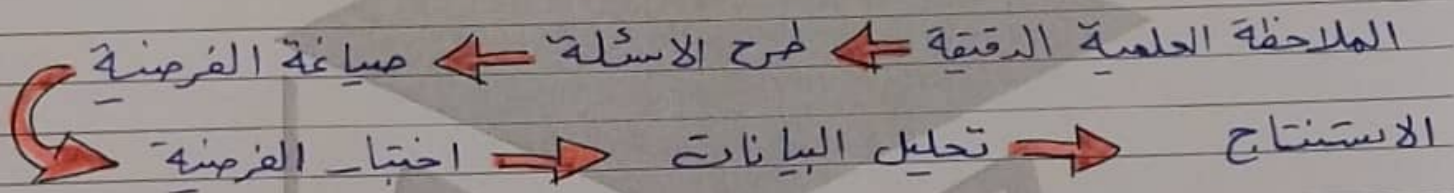 الملاحظة العلمية الدقيقة ← طرح الاسئلة ← صياغة الفرضية
اختبار الفرضية → تحليل البيانات → الاستنتاج